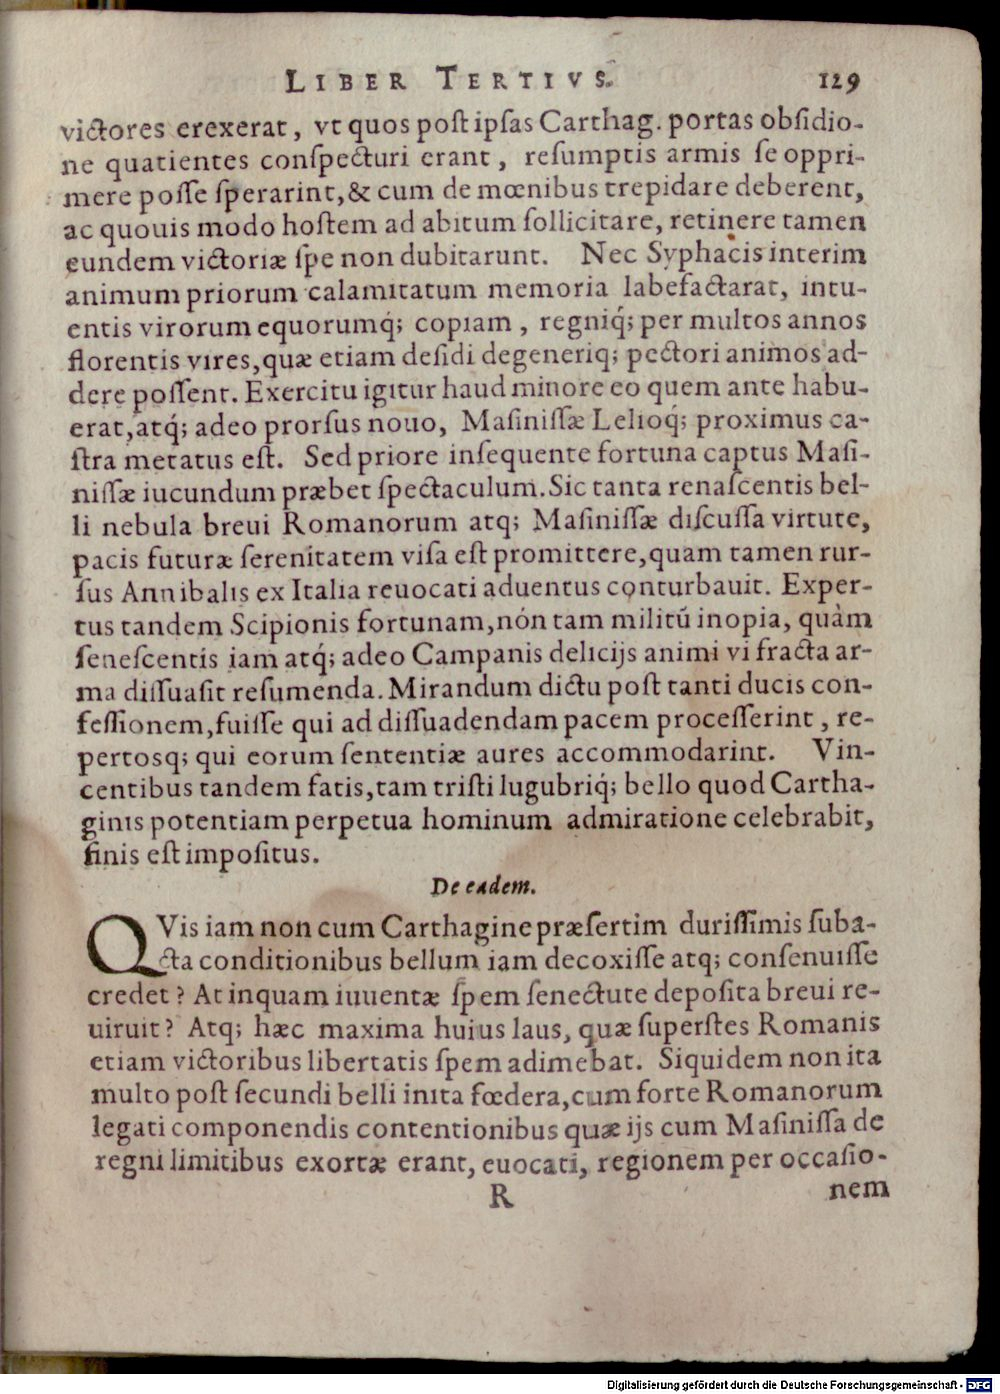 LIBER TERTIVS. 129
victores erexerat, vt quos post ipsas Carthag. portas obsidio-
ne quatientes conspecturi erant, resumptis armis se oppri-
mere posse sperarint, & cum de mœnibus trepidare deberent,
ac quouis modo hostem ad abitum sollicitare, retinere tamen
eundem victoriæ spe non dubitarunt. Nec Syphacis interim
animum priorum calamitatum memoria labefactarat, intu-
entis virorum equorumq́; copiam, regniq́; per multos annos
florentis vires, quæ etiam desidi degeneriq; pectori animos ad-
dere possent. Exercitu igitur haud minore eo quem ante habu-
erat, atq́; adeo prorsus nouo, Masinissæ Lelioq́; proximus ca-
stra metatus est. Sed priore insequente fortuna captus Masi-
nissæ iucundum præbet spectaculum. Sic tanta renascentis bel-
li nebula breui Romanorum atq; Masinissæ discussa virtute,
pacis futuræ serenitatem visa est promittere, quam tamen rur-
sus Annibalis ex Italia reuocati aduentus conturbauit. Exper-
tus tandem Scipionis fortunam, nón tam militū inopia, quàm
senescentis iam atq́; adeo Campanis delicijs animi vi fracta ar-
ma dissuasit resumenda. Mirandum dictu post tanti ducis con-
fessionem, fuisse qui ad dissuadendam pacem processerint, re-
pertosq; qui eorum sententiæ aures accommodarint. Vin-
centibus tandem fatis, tam tristi lugubriq́; bello quod Cartha-
ginis potentiam perpetua hominum admiratione celebrabit,
finis est impositus.
De eadem.
QVis iam non cum Carthagine præsertim durissimis suba-
cta conditionibus bellum iam decoxisse atq; consenuisse
credet? At inquam iuuentæ spem senectute deposita breui re-
uiruit? Atq; hæc maxima huius laus, quæ superstes Romanis
etiam victoribus libertatis spem adimebat. Siquidem non ita
multo post secundi belli inita fœdera, cum forte Romanorum
legati componendis contentionibus quæ ijs cum Masinissa de
regni limitibus exortæ erant, euocati, regionem per occasio-
R nem
Digitalisierung gefördert durch die Deutsche Forschungsgemeinschaft - DFG